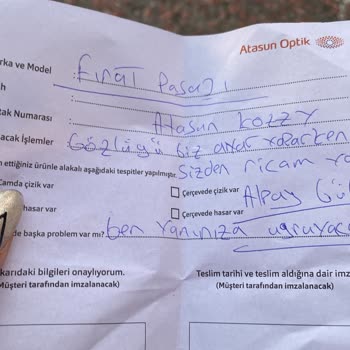 Atasun Optik
rka ve Model : Fırat Pasajı
h :
tak Numarası : Atasun kozzy
acak İşlemler Gözlüğü biz
n ettiğiniz ürünle alakalı aşağıdaki tespitler yapılmıştır. Sizden ricam
Camda çizik var Çerçevede çizik var Alpay
hasar var Çerçevede hasar var
de başka problem var mı? ben yanınıza
karıdaki bilgileri onaylıyorum. Teslim tarihi ve teslim aldığına dair imz
Müşteri tarafından imzalanacak) (Müşteri tarafından imzalanacak)